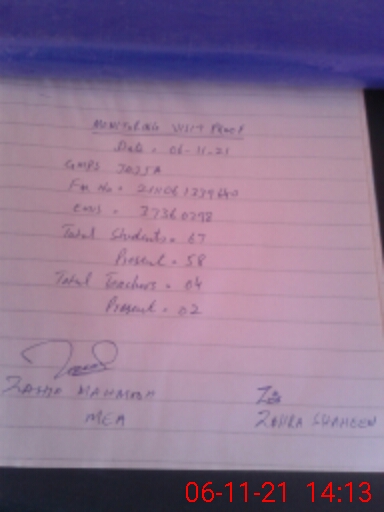 MONITORING VISIT PROOF
Date = 06-11-21
GMPS JOJSA
EMIS = 37360298
Total Students = 67
Present = 58
Total Teachers = 04
Present = 02
MAHMOOD
MEA
ZAHRA SHAHEEN
06-11-21 14:13